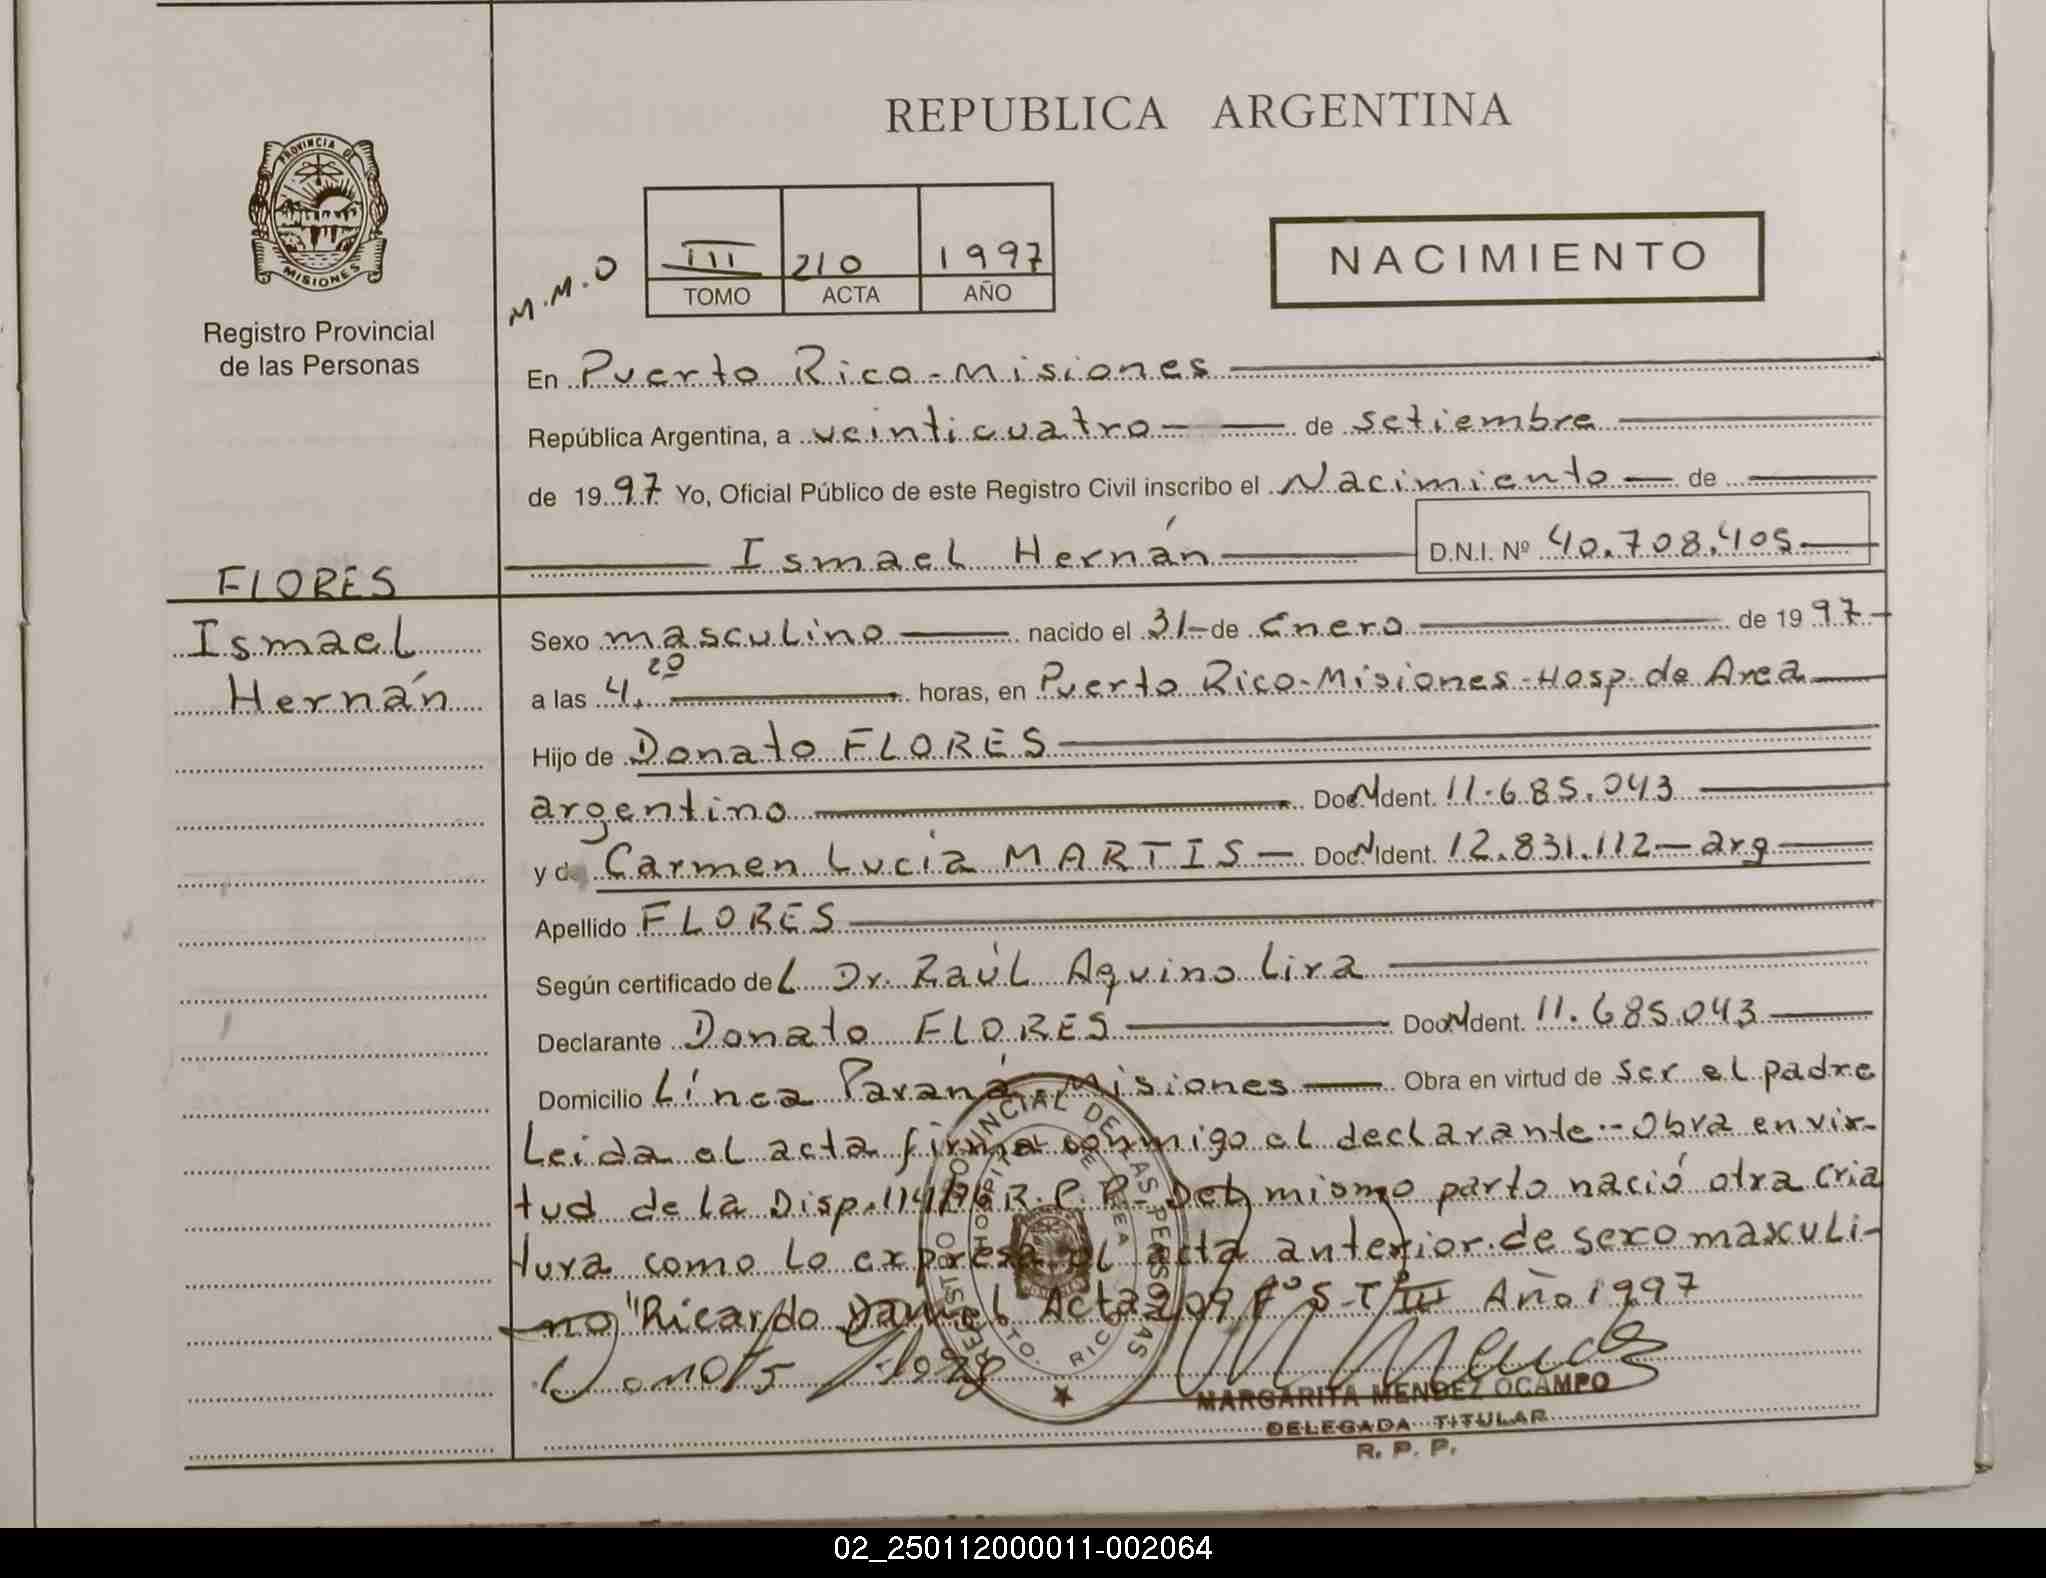 REPUBLICA ARGENTINA
PROVINCIA DE
MISIONES
Registro Provincial
de las Personas
M.M.O
III 210 1997
TOMO ACTA AÑO
NACIMIENTO
En Puerto Rico-Misiones
República Argentina, a veinticuatro de setiembre
de 1997 Yo, Oficial Público de este Registro Civil inscribo el Nacimiento de
Ismael Hernán D.N.I. Nº 40.708.405
FLORES
Ismael
Hernán
Sexo masculino nacido el 31 de Enero de 1997
a las 4.20 horas, en Puerto Rico-Misiones-Hosp. de Area
Hijo de Donato FLORES
argentino Doc.N.Ident. 11.685.043
y de Carmen Lucía MARTIS Doc.N.Ident. 12.831.112 arg
Apellido FLORES
Según certificado del Dr. Raúl Aquino Lira
Declarante Donato FLORES Doc.N.Ident. 11.685.043
Domicilio Línea Paraná Misiones Obra en virtud de ser el padre
Leida el acta firma conmigo el declarante.-Obra en vir-
tud de la Disp. 114/96 R.P.P. Del mismo parto nació otra cria
tura como lo expresa el acta anterior de sexo masculi-
no "Ricardo Daniel Acta 209 Fº 5-Tº III Año 1997
REGISTRO PROVINCIAL DE LAS PERSONAS
HOSPITAL DE AREA
PTO. RICO
Donato Flores M Mendez
MARGARITA MENDEZ OCAMPO
DELEGADA TITULAR
R. P. P.
02_250112000011-002064